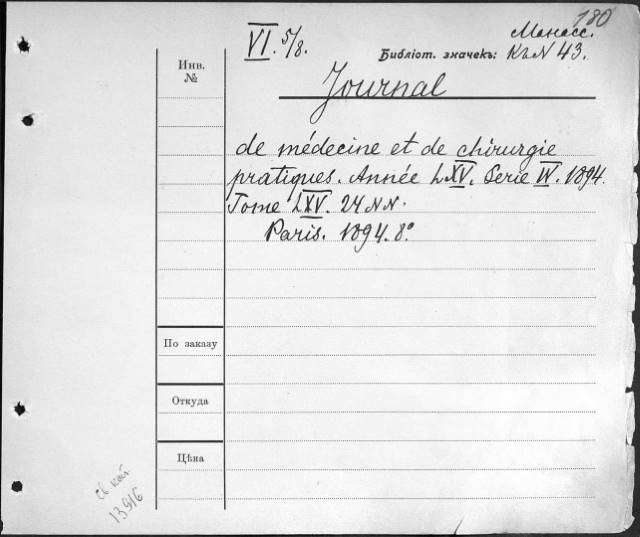 180
VI. 5/8.
Манасс.
Библіот. значекъ: КъN 43.
Инв. №
Journal
de médecine et de chirurgie
pratiques. Année LXV. Serie IV. 1894.
Tome LXV. 24 NN.
Paris. 1894. 8°
По заказу
Откуда
Цѣна
св кат.
13916